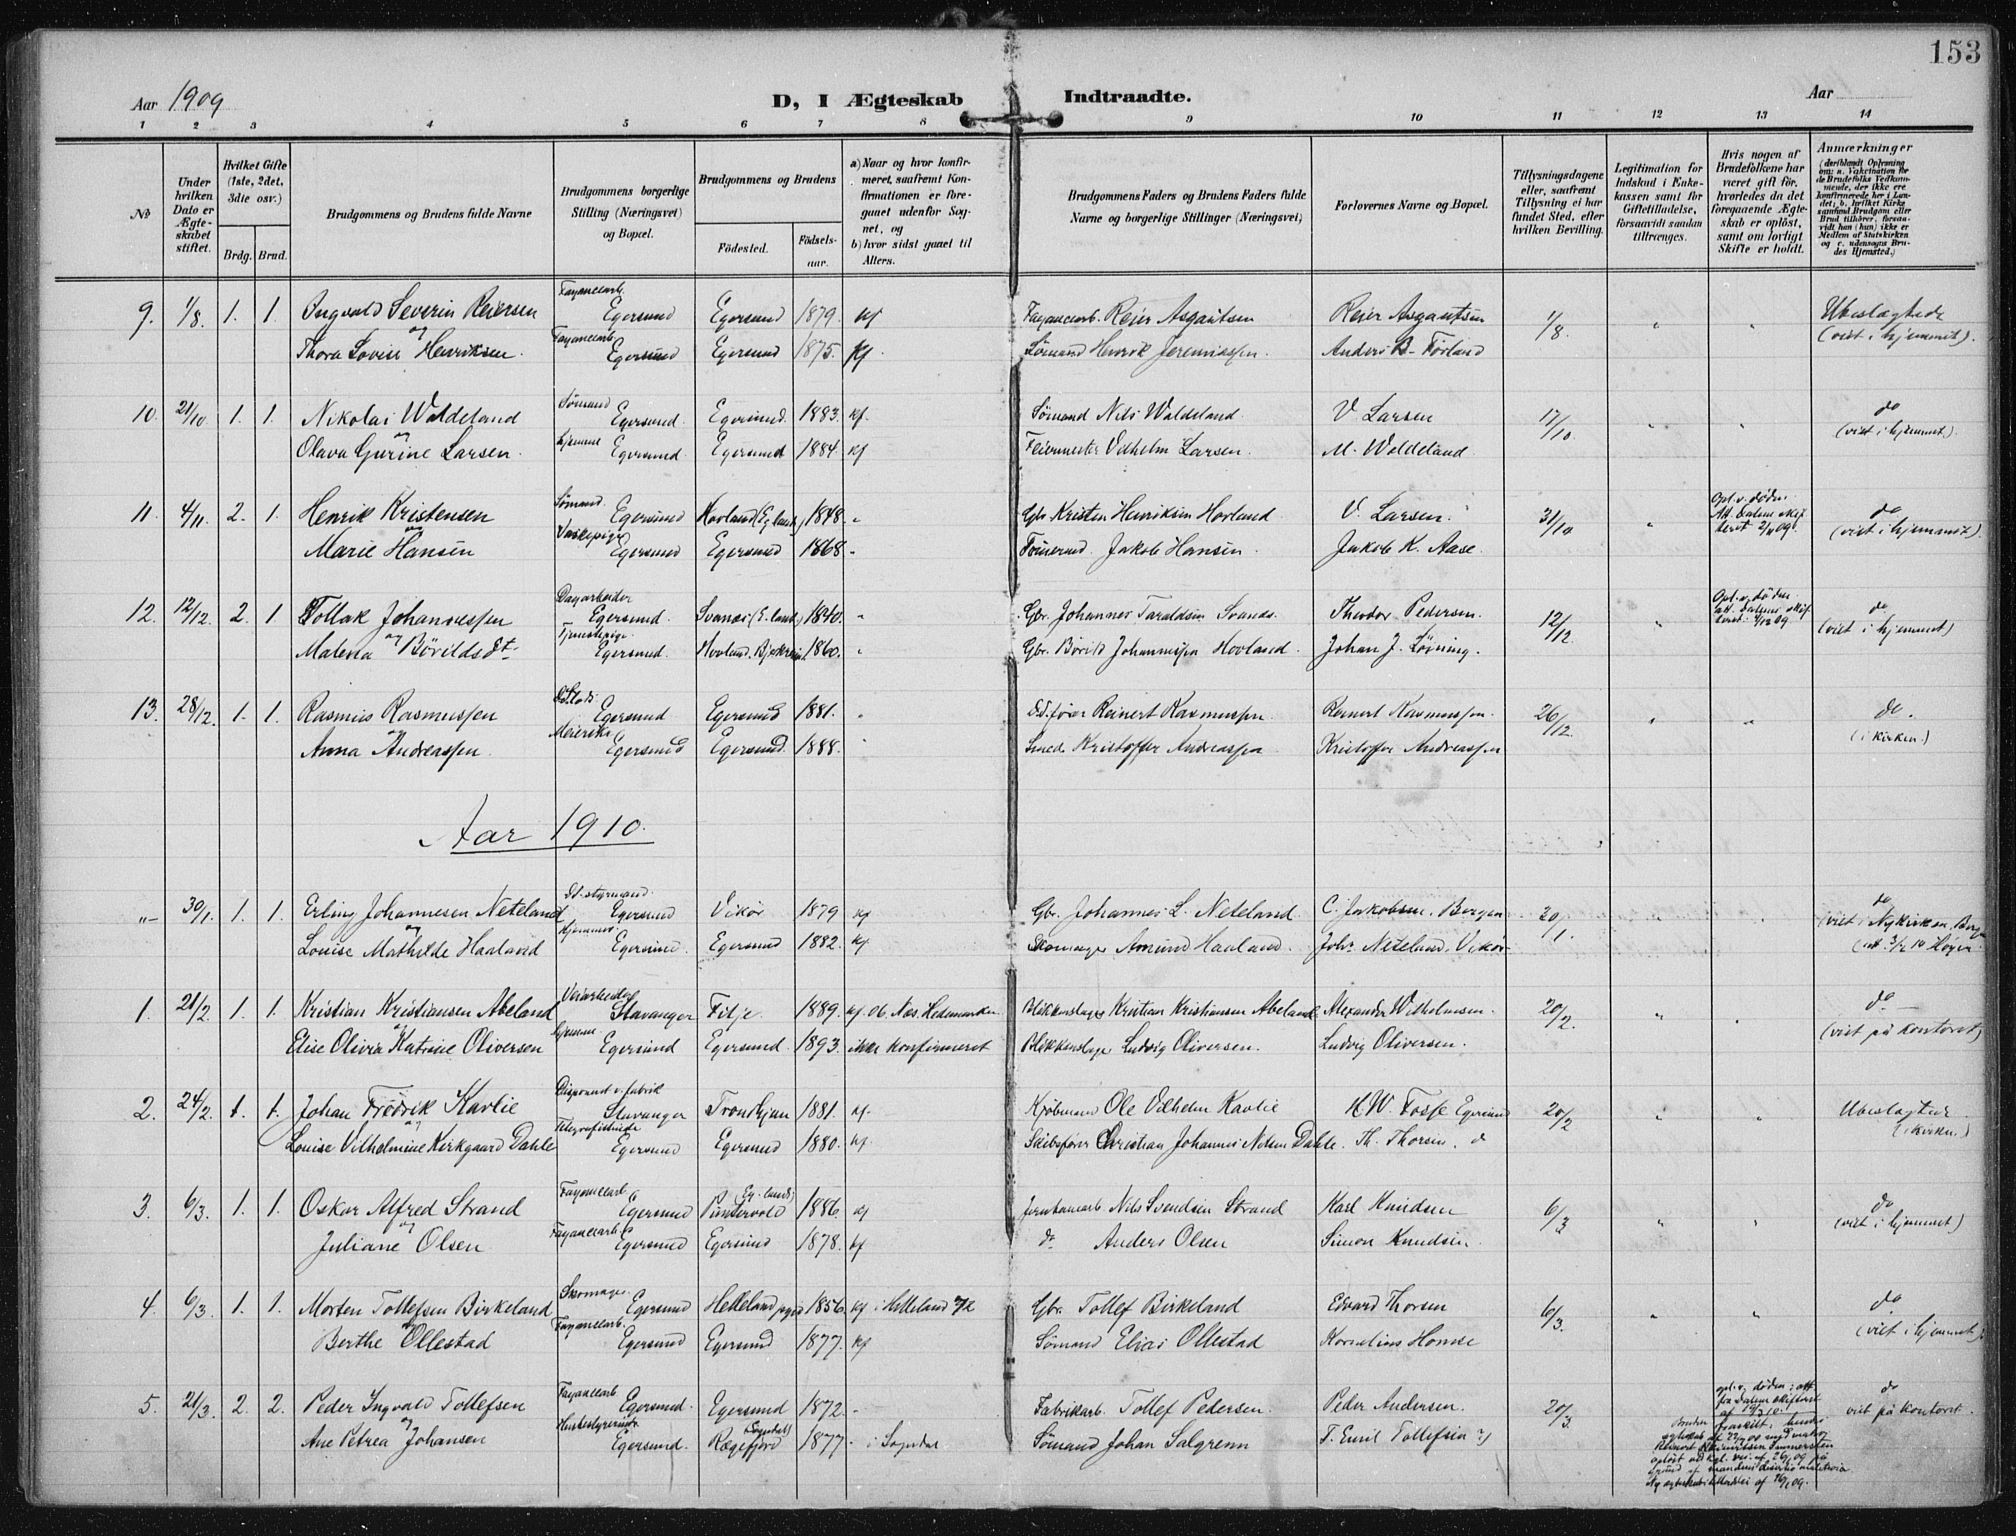 153
Aar 1909
D, I Ægteskab Indtraadte.
Aar
1 2 3 4 5 6 7 8 9 10 11 12 13 14
No
Under hvilken Dato er Ægteskabet stiftet.
Hvilket Gifte (1ste, 2det, 3die osv.)
Brdg. Brud.
Brudgommens og Brudens fulde Navne
Brudgommens borgerlige Stilling (Næringsvei) og Bopæl.
Brudgommens og Brudens
Fødested. Fødselsaar.
a) Naar og hvor konfirmeret, saafremt Konfirmationen er foregaaet udenfor Sognet, og
b) hvor sidst gaaet til Alters.
Brudgommens Faders og Brudens Faders fulde Navne og borgerlige Stillinger (Næringsvei)
Forlovernes Navne og Bopæl.
Tillysningsdagene eller, saafremt Tillysning ei har fundet Sted, efter hvilken Bevilling.
Legitimation for Indskud i Enkekassen samt for Giftetilladelse, forsaavidt saadan tiltrænges.
Hvis nogen af Brudefolkene har været gift før, hvorledes da det foregaaende Ægteskab er opløst, samt om lovligt Skifte er holdt.
Anmærkninger (deriblandt Oplysning om: a. Vakcination for de Brudefolks Vedkommende, der ikke ere konfirmerede her i Landet; b. hvilket Kirkesamfund Brudgom eller Brud tilhører, forsaavidt han (hun) ikke er Medlem af Statskirken og c. udensogns Brudes Hjemsted.)
9. 1/8. 1. 1. Ingvald Severin Reiersen Fayancearb. Egersund Egersund 1879. kf Fayancearb. Reier Asgautsen Reier Asgautsen 1/8. " " Ubeslægtede
og
Thora Lovise Henriksen. Fayancearb Egersund Egersund 1875. kf Sømand Henrik Jeremiassen. Anders B. Førland (viet i hjemmet).
10. 21/10. 1. 1. Nikolai Waldeland Sømand Egersund. Egersund. 1883. kf. Sømand Nils Waldeland. V Larsen 17/10 " " do
og
Olava Gurine Larsen. hjemme Egersund. Egersund 1884. kf Feiermester Vilhelm Larsen. M. Waldeland. (viet i hjemmet).
11. 4/11. 2. 1. Henrik Kristensen Sømand. Egersund Hovland (Eg.land) 1848. " Gbr Kristen Henriksen Hovland V. Larsen. 31/10 " Opl. v. døden. Att. Dalene skifteret 2/11 09. do
og
Marie Hansen Vaskepige Egersund Egersund 1868 " Tømmermd. Jakob Hansen. Jakob K. Aase. (viet i hjemmet).
12. 12/12. 2. 1. Tollak Johannessen Dagarbeider Egersund. Svanes (E.land) 1840. " Gbr. Johannes Taraldsen Svanes. Theodor Pedersen. 12/12 " Opl. v. døden att. Dalene skifteret 09. do
og
Malena Bøvildsdt. Tjenestepige Egersund. Hovland. Bjerkreim 1860. " Gbr. Børild Johannessen Hovland. Johan J. Løvning. (viet i hjemmet)
13. 28/12. 1. 1. Rasmus Rasmussen Egersund Egersund 1881. " Reinert Rasmussen. Reinert Rasmussen. 26/12. " " do.
og
Anna Andreassen. Meierske Egersund Egersund. 1888. " Smed Kristoffer Andreassen Kristoffer Andreassen (i kirken.)
Aar 1910.
"- 30/1. 1. 1. Erling Johannesen Neteland Dd.styrmand. Egersund Vikør 1879 kf Gbr. Johannes L. Neteland. C. Jakobsen. Bergen 30/1. " " do
og
Louise Mathilde Haaland hjemme. Egersund. Egersund 1882. kf Skomager Amund Haaland. Johs. Neteland. Vikør (viet i Nykirken Bergen
1. 21/2 1. 1. Kristian Kristiansen Abeland Veiarbeider Stavanger Fitje 1889. kf. 06. Næs. Hedemarken Blikkenslager Kristian Kristiansen Abeland Alexander Wilhelmsen. 20/2. " " do
og
Elise Olivia Katrine Oliversen hjemme Egersund Egersund. 1893. ikke konfirmeret Blikkenslager Ludvig Oliversen. Ludvig Oliversen. (viet på kontoret)
2. 24/2. 1. 1. Johan Fredrik Kavlie Disponent v. fabrik Stavanger Trondhjem 1881. kf. Kjøbmand Ole Vilhelm Kavlie M.W. Fosse Egersund 20/2 " " Ubeslægtede.
og
Louise Vilhelmine Kirkgaard Dahle Telegrafistinde Egersund Egersund 1880. kf. Skibsfører Christian Johannes Nelsen Dahle. Th. Thorsen. do (i kirken.)
3. 6/3. 1. 1. Oskar Alfred Strand Fayancearb Egersund Pundervold (Eg.land) 1886. kf Jernbanearb. Nils Svendsen Strand Karl Knudsen 6/3 " " do
og
Juliane Olsen Fayancearb Egersund Egersund 1878. kf do Anders Olsen Simon Knudsen. (viet i hjemmet)
4. 6/3. 1. 1. Morten Tollefsen Birkeland Skomager Egersund Helleland pgd 1856. kf i Helleland 72 Gbr. Tollef Birkeland Edvard Thorsen 6/3. " " do
og
Berthe Ollestad Fayancearb. Egersund Egersund 1877. kf Sømand Elias Ollestad Kornelius Homse (viet i hjemmet).
5. 21/3. 2. 2. Peder Ingvald Tollefsen Fayancearb Egersund. Egersund 1872. - Fabrikarb. Tollef Pedersen. Peder Andersen. 20/3 opl. v. døden: att. fra Dalene skifteret do
og
Ane Petrea Johansen Husbestyrerinde Egersund. Rægefjord (Sogndal) 1877. - i Sogndal Sømand Johan Salgrenn T. Emil Tollefsen viet på kontoret.